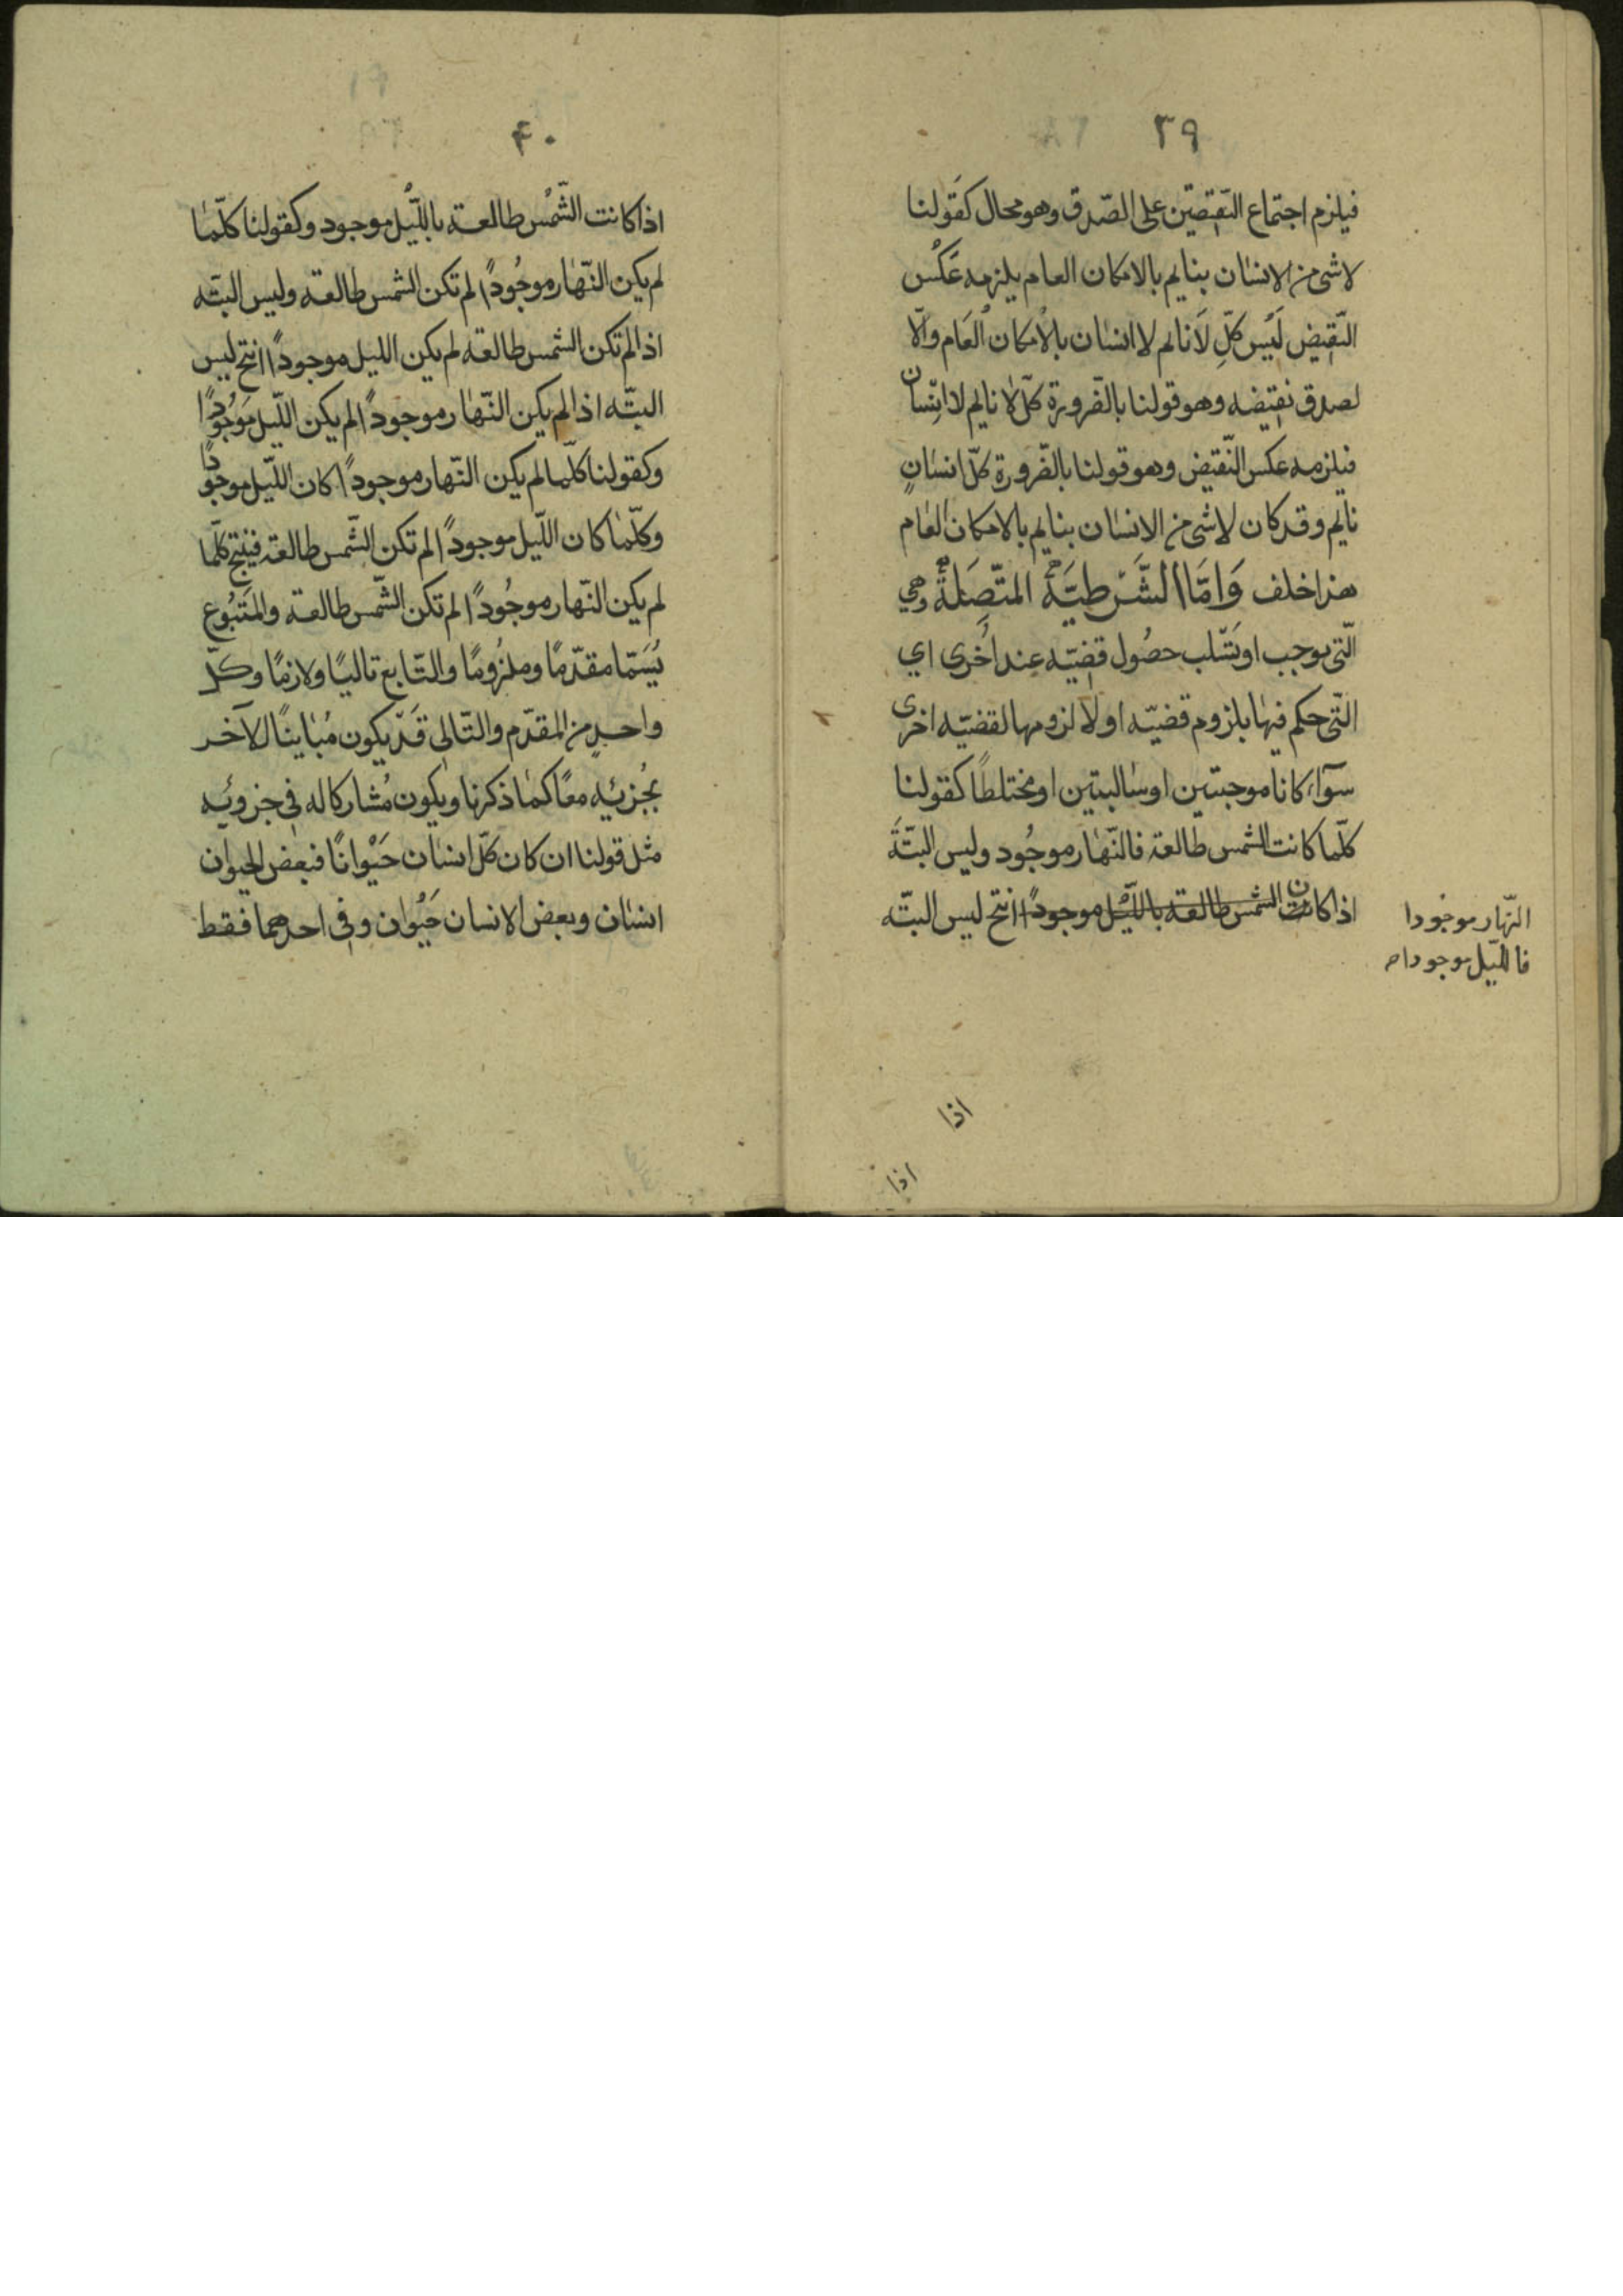 ٣٩
فيلزم اجتماع النّقيضين على الصّدق وهو محال كقولنا
لا شئ من الانسان بنايم بالامكان العام يلزمه عَكْس
النّقيض لَيْس كلّ لَا نايم لا انسٰان بالامكان العَام والّا
لصدق نقيضه وهو قولنا بالضّرورة كلّ لا نايم لا انسان
فيلزمه عكس النّقيض وهو قولنا بالضّرورة كلّ انسٰانٍ
نايم وقد كان لا شئ من الانسٰان بنايم بالامكان العٰام
هذا خلف وَامَّا الشَّرْطيَّة المتّصِلَة وهي
الّتى توجب او تسّلب حصُول قضيّه عند أخرى اي
التّى حكم فيهٰا بلزوم قضيّه او لا لزومها لقضيّه اخرى
سوٓاء كانا موجبتين او سٰالبتين او مختلطًا كقولنا
كلّما كانت الشمس طالعة فالنّهٰار موجُود وليس البتّةَ
اذا كان الشمس طالعة باللّيل موجودًا انتج ليس البتّه
النّهار موجودا
فالليّل موجودا صح
اذا
اذا
٤٠
اذا كانت الشّمْس طالعة باللّيْل موجود وكقولنا كلّمٰا
لم يكن النّهٰار موجُودًا لم تكن الشمس طالعة وليس البتّه
اذا لم تكن الشمس طالعة لم يكن الليل موجودًا انتج ليس
البتّه اذا لم يكن النّهٰار موجودًا لم يكن اللّيل مَوْجُودًا
وكقولنا كلّما لم يكن النّهار موجودًا كان اللّيل موجودًا
وكلّمٰا كان اللّيل موجودًا لم تكن الشّمس طالعة فينتج كلّما
لم يكن النّهار موجُودًا لم تكن الشّمس طالعة والمَتْبُوع
يُسَمّا مقدّمًا وملزُومًا والتّابع تاليًا ولازمًا وكلّ
واحدٍ من المقدّم والتّالى قَدّ يكون مُبٰاينًا للآخر
بجُزئيه معًا كمٰا ذكرنا ويكون مُشاركا له فى جزوئيه
مثل قولنا ان كان كلّ انسٰان حَيْوانًا فبعض الحيوان
انسٰان وبعض الانسان حَيْوان وفى احدهما فقط